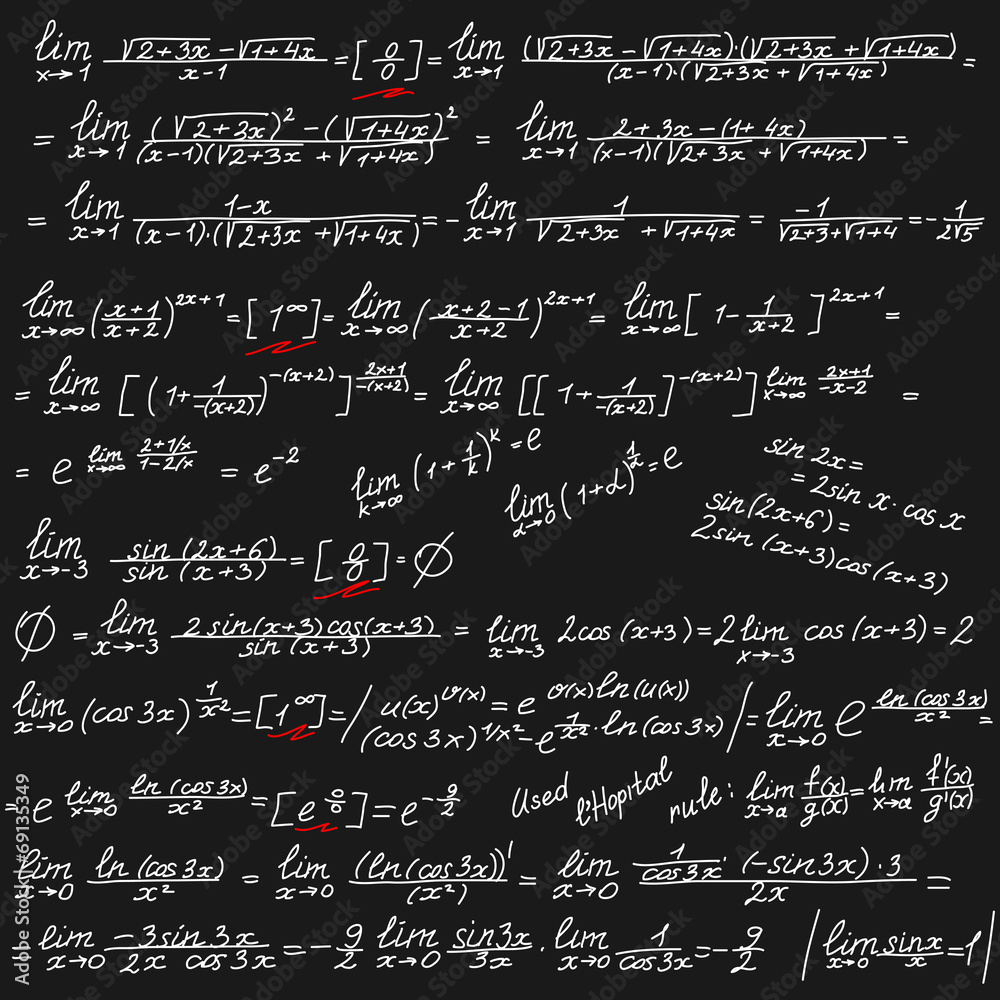 lim x→1 (√2+3x − √1+4x)/(x−1) = [0/0] = lim x→1 ((√2+3x − √1+4x)·(√2+3x + √1+4x))/((x−1)·(√2+3x + √1+4x)) =
= lim x→1 ((√2+3x)² − (√1+4x)²)/((x−1)(√2+3x + √1+4x)) = lim x→1 (2+3x−(1+4x))/((x−1)(√2+3x + √1+4x)) =
= lim x→1 (1−x)/((x−1)·(√2+3x + √1+4x)) = − lim x→1 1/(√2+3x + √1+4x) = −1/(√2+3+√1+4) = −1/(2√5)
lim x→∞ ((x+1)/(x+2))^(2x+1) = [1^∞] = lim x→∞ ((x+2−1)/(x+2))^(2x+1) = lim x→∞ [1 − 1/(x+2)]^(2x+1) =
= lim x→∞ [(1+1/(−(x+2)))^(−(x+2))]^((2x+1)/(−(x+2))) = lim x→∞ [[1+1/(−(x+2))]^(−(x+2))]^(lim x→∞ (2x+1)/(−x−2)) =
= e^(lim x→∞ (2+1/x)/(1−2/x)) = e^(−2)
lim k→∞ (1+1/k)^k = e
lim α→0 (1+α)^(1/α) = e
sin 2x =
= 2sin x · cos x
sin(2x+6) =
2sin (x+3)cos(x+3)
lim x→−3 sin (2x+6)/sin (x+3) = [0/0] = ∅
∅ = lim x→−3 (2 sin(x+3) cos(x+3))/(sin (x+3)) = lim x→−3 2cos (x+3) = 2 lim x→−3 cos (x+3) = 2
lim x→0 (cos 3x)^(1/x²) = [1^∞] = / u(x)^(v(x)) = e^(v(x)ln(u(x)))
(cos 3x)^(1/x²) − e^(1/x² · ln(cos 3x)) / = lim x→0 e^(ln(cos 3x)/x²) =
= e^(lim x→0 ln (cos 3x)/x²) = [e^(0/0)] = e^(−9/2)
Used l'Hopital rule: lim x→a f(x)/g(x) = lim x→a f'(x)/g'(x)
lim x→0 ln (cos 3x)/x² = lim x→0 (ln(cos 3x))'/(x²) = lim x→0 (1/cos3x · (−sin3x) · 3)/2x =
lim x→0 (−3 sin 3x)/(2x cos 3x) = −9/2 lim x→0 sin3x/3x · lim x→0 1/cos3x = −9/2 | lim x→0 sinx/x = 1 |
Adobe Stock
Adobe Stock | #69135349